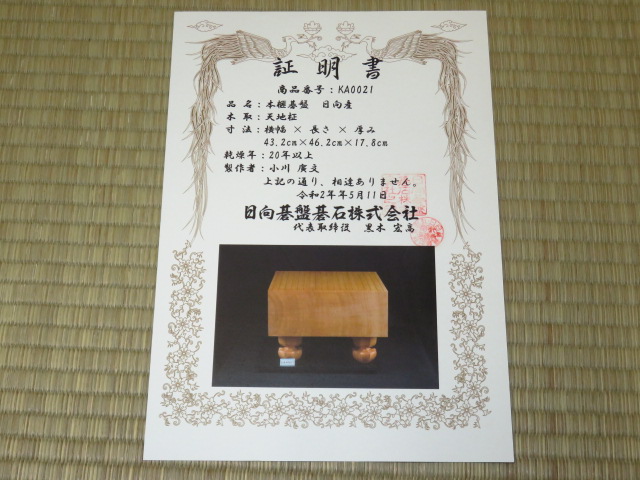 証明書
商品番号：KA0021
品名：本榧碁盤 日向産
木取：天地柾
寸法：横幅 × 長さ × 厚み
43.2cm×46.2cm×17.8cm
乾燥年：20年以上
製作者：小川 廣文
上記の通り、相違ありません。
令和2年年5月11日
日向碁盤碁石株式会社
代表取締役 黒木 宏高